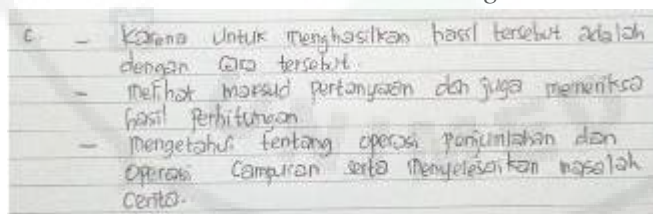 c. - Karena untuk menghasilkan hasil tersebut adalah
dengan cara tersebut.
- melihat maksud pertanyaan dan juga memeriksa
hasil perhitungan
- mengetahui tentang operasi penjumlahan dan
operasi campuran serta menyelesaikan masalah
cerita.